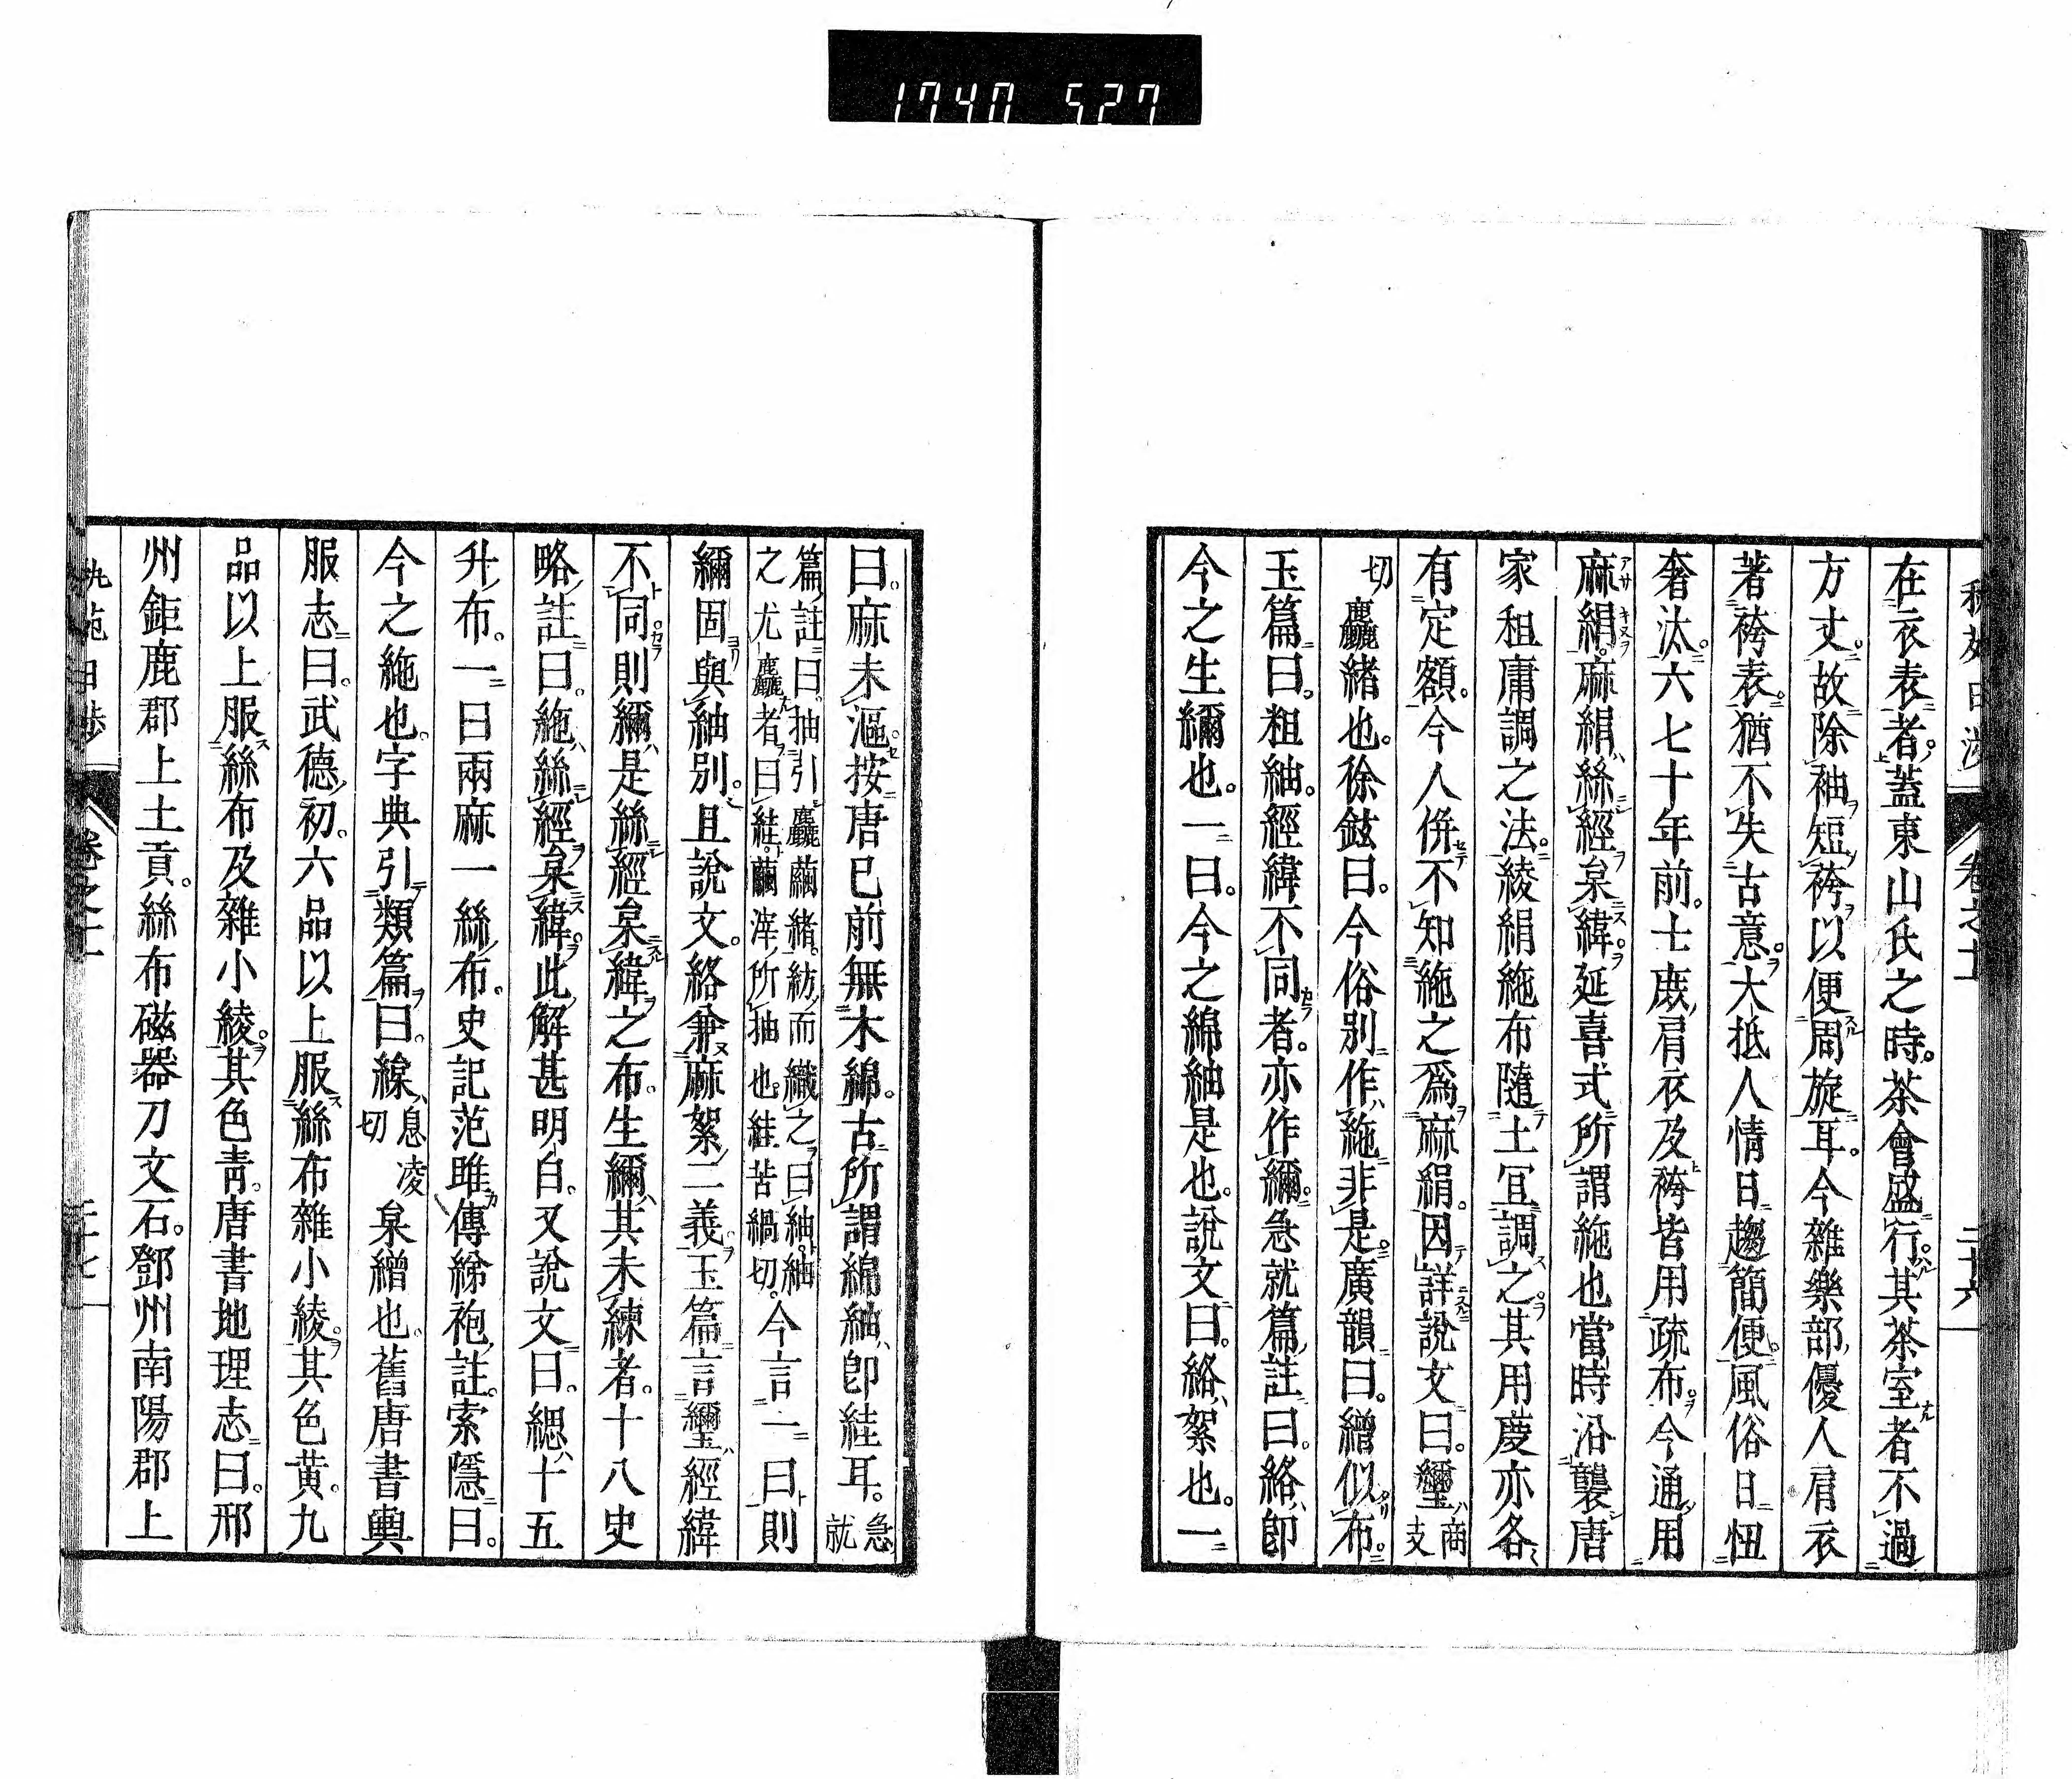 1740 527
卷之十 二十六
在衣表者。蓋東山氏之時。茶會盛行。其茶室者不過
方丈。故除袖短袴以便周旋耳。今雜樂部優人肩衣
著袴表。猶不失古意。大抵人情日趨簡便。風俗日忸
奢汰。六七十年前。士庶肩衣及袴皆用疏布。今通用
麻絹。麻絹絲經枲緯。延喜式所謂絁也。當時沿襲唐
家租庸調之法。綾絹絁布隨土宜調之。其用度亦各
有定額。今人併不知絁之爲麻絹。因詳說文曰。𥿇商支
切麤緖也。徐鉉曰。今俗別作絁非是。廣韻曰。繒似布。
玉篇曰。粗紬。經緯不同者。亦作䌤。急就篇註曰。絡卽
今之生䌤也。一曰。今之綿紬是也。說文曰。絡絮也。一
曰。麻未漚。按唐已前無木綿。古所謂綿紬、卽絓耳。急就
篇註曰。抽引麤繭緖。紡而織之曰紬。紬之尤麤者曰絓。繭滓所抽也。絓苦緺切。今言一曰則
䌤固與紬別。且說文。絡兼麻絮二義。玉篇言𥿇經緯
不同則䌤是絲經枲緯之布。生䌤其未練者。十八史
略註曰。絁絲經枲緯。此解甚明白。又說文曰。緦十五
升布。一曰兩麻一絲布。史記范雎傳綈袍註。索隱曰。
今之絁也。字典引類篇曰。線息凌切枲繒也。舊唐書輿
服志曰。武德初。六品以上服絲布雜小綾。其色黃。九
品以上服絲布及雜小綾。其色靑。唐書地理志曰。邢
州鉅鹿郡上土貢。絲布磁器刀文石。鄧州南陽郡上